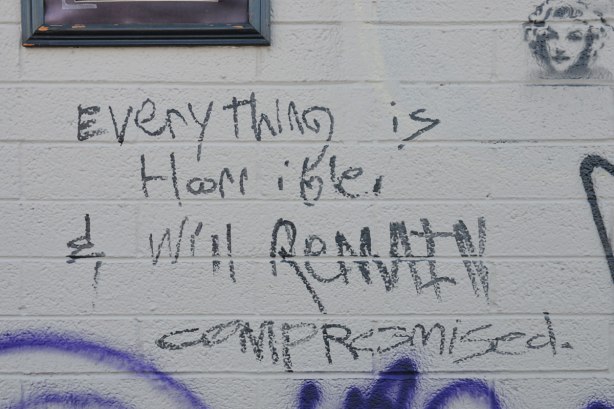 Everything is
Horrible,
& Will REMAIN
COMPROMISED.